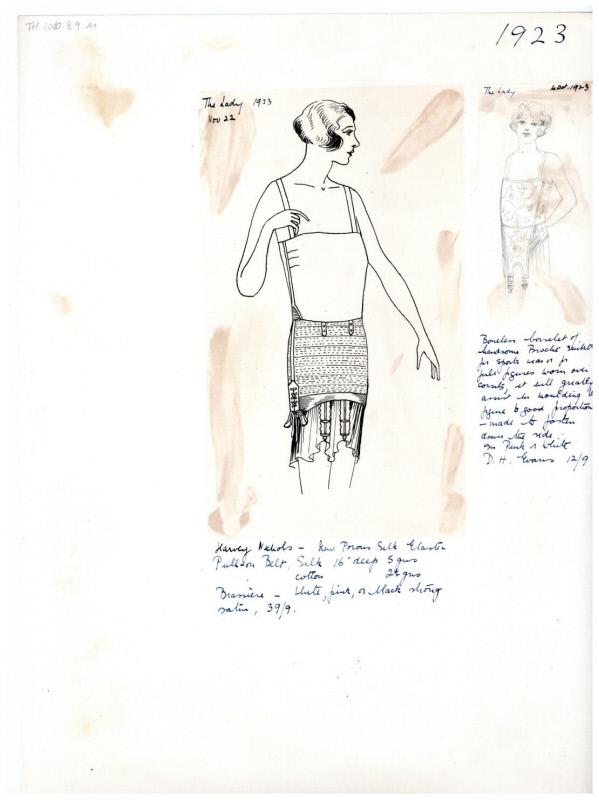 TH.2010.89.11
1923
The Lady 1923
Nov 22
The Lady
Oct. 1923
Harvey Nichols - New Porous Silk Elastic
Pull-on Belt, Silk 16" deep 5 gns
cotton 2½ gns
Brassière - White, pink, or black strong
satin, 39/9.
Boneless corselet of
handsome Broché suitable
for sports wear or for
full figures worn over
corsets, it will greatly
assist in moulding the
figure to good proportions
- made to fasten
down the side.
In Pink or White
D. H. Evans 12/9